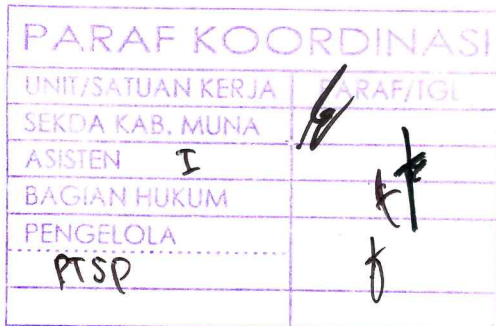 PARAF KOORDINASI
UNIT/SATUAN KERJA PARAF/TGL
SEKDA KAB. MUNA
ASISTEN I
BAGIAN HUKUM
PENGELOLA
PTSP